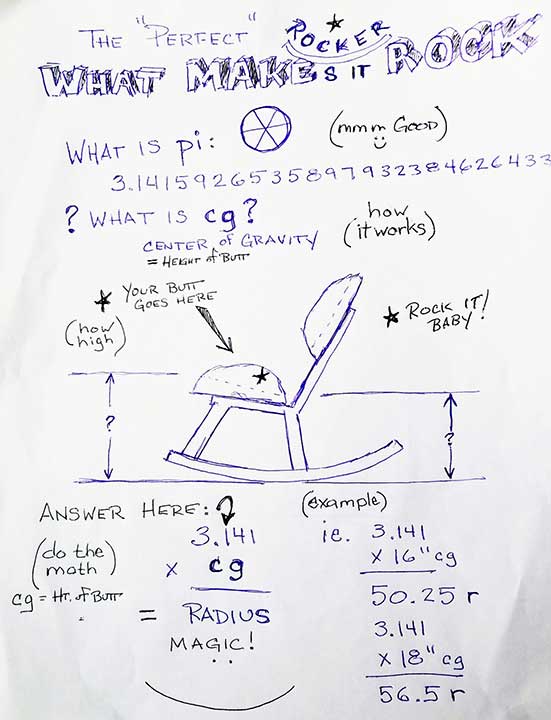 THE "PERFECT" ROCKER
WHAT MAKES IT ROCK
WHAT IS pi: (mmm GOOD)
3.1415926535897932384626433
? WHAT IS cg? (how it works)
CENTER of GRAVITY
= HEIGHT of BUTT
YOUR BUTT
GOES HERE
(how
high)
ROCK IT!
BABY!
?
?
ANSWER HERE:
3.141
x cg
= RADIUS
MAGIC!
(do the
math)
cg = HT. of BUTT
(example)
ie. 3.141
x 16" cg
50.25 r
3.141
x 18" cg
56.5 r